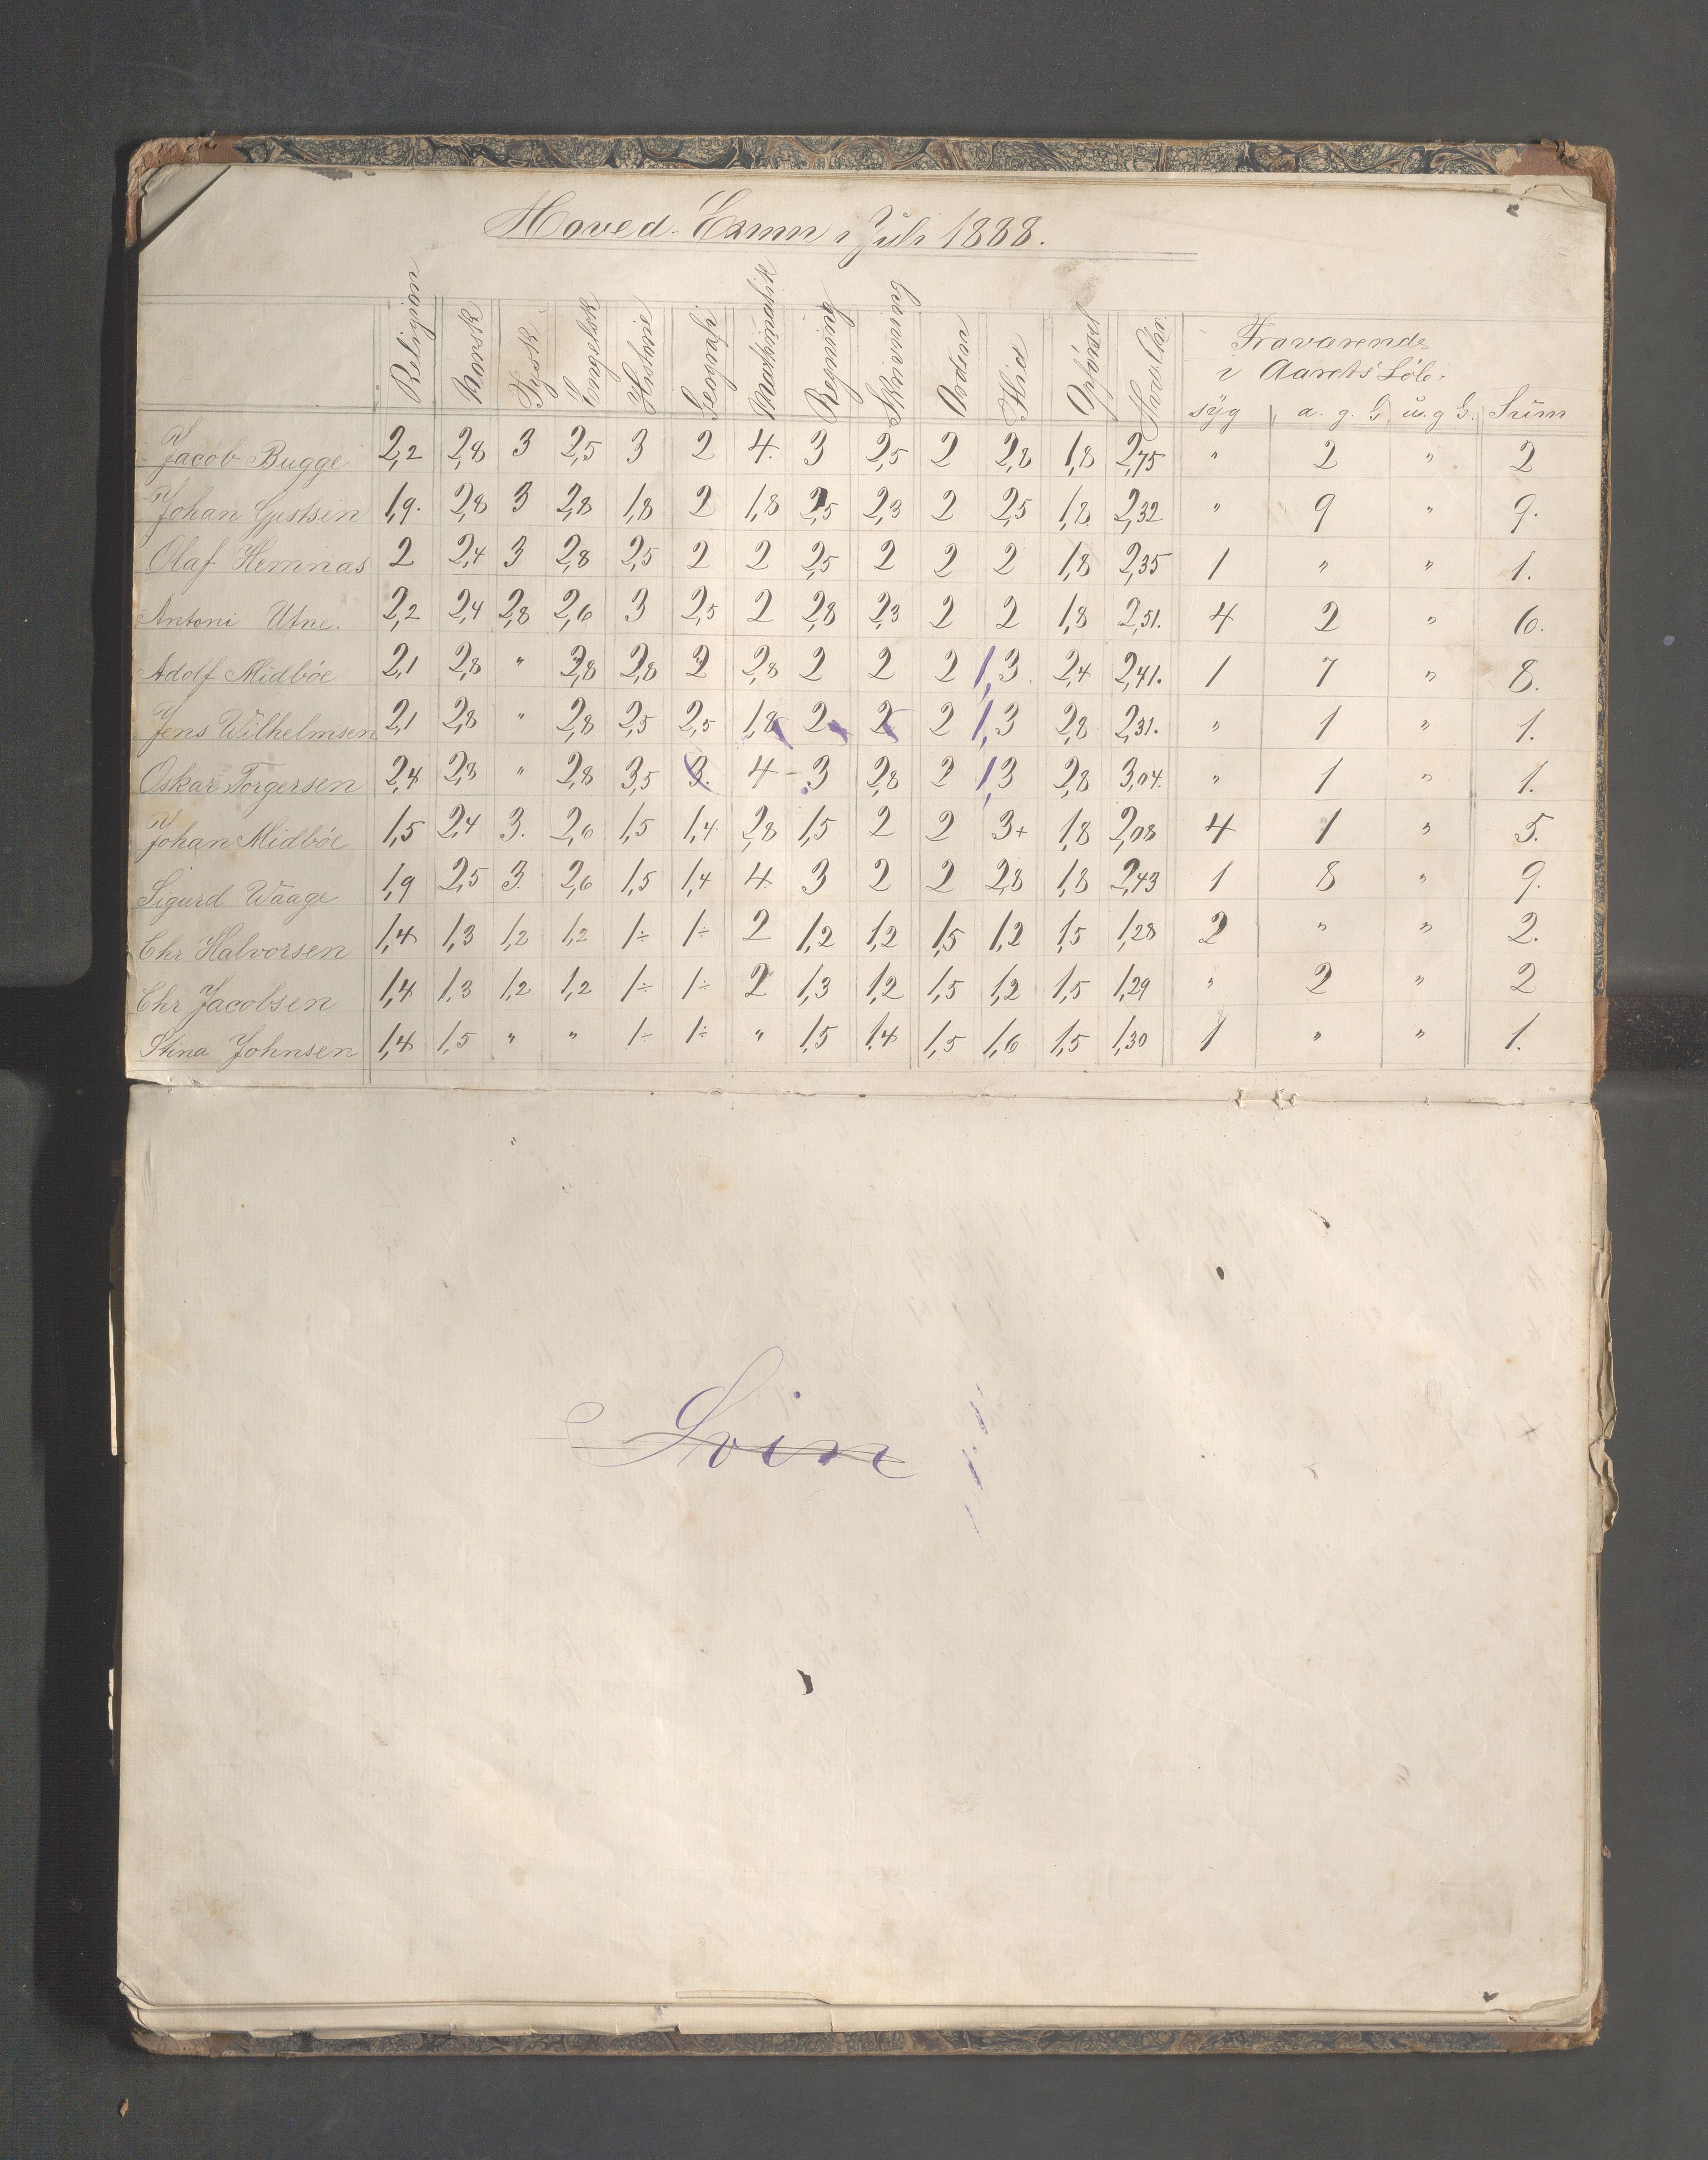 Hoved. Exmn i Juli 1888.
Religion Norsk Tysk Engelsk Historie Geografi Mathmatik Regning Skrivning Orden Flid Opförsel Hov.Chr. Fraværende
i Aarets Löb.
syg a. g. G. u. g G. Sum
Jacob Bugge 2,2 2,8 3 2,5 3 2 4. 3 2,5 2 2,8 1,8 2,75 " 2 " 2
Johan Gjestsen 1,9. 2,8 3 2,8 1,8 2 1,8 2,5 2,3 2 2,5 1,8. 2,32 " 9 " 9.
Olaf Hemnas 2 2,4 3 2,8 2,5 2 2 2,5 2 2 2 1,8 2,35 1 " " 1.
Antoni Utne. 2,2 2,4 2,8 2,6 3 2,5 2 2,8 2,3 2 2 1,8 2,51. 4 2 " 6.
Adolf Midböe 2,1 2,8 " 2,8 2,8 2 2,8 2 2 2 1,3. 2,4 2,41. 1 7 " 8.
Jens Wilhelmsen 2,1 2,8 " 2,8 2,5 2,5 1,8 2 2 2 1,3 2,8 2,31. " 1 " 1.
Oskar Torgersen 2,4 2,8 " 2,8 3,5 3. 4 - 3 2,8 2 1,3 2,8 3,04. " 1 " 1.
Johan Midböe 1,5 2,4 3. 2,6 1,5 1,4 2,8 1,5 2 2 3+ 1,8 2,08 4 1 " 5.
Sigurd Waage 1,9 2,5 3. 2,6 1,5 1,4 4. 3 2 2 2,8 1,8 2,43 1 8 " 9.
Chr Halvorsen 1,4 1,3 1,2 1,2 1÷ 1÷ 2 1,2 1,2 1,5 1,2 1,5 1,28 2 " " 2.
Chr Jacobsen 1,4 1,3 1,2 1,2 1÷ 1÷ 2 1,3 1,2 1,5 1,2 1,5 1,29 " 2 " 2
Stina Johnsen 1,4 1,5 " " 1÷ 1÷ " 1,5 1,4 1,5 1,6 1,5 1,30 1 " " 1.
Svin